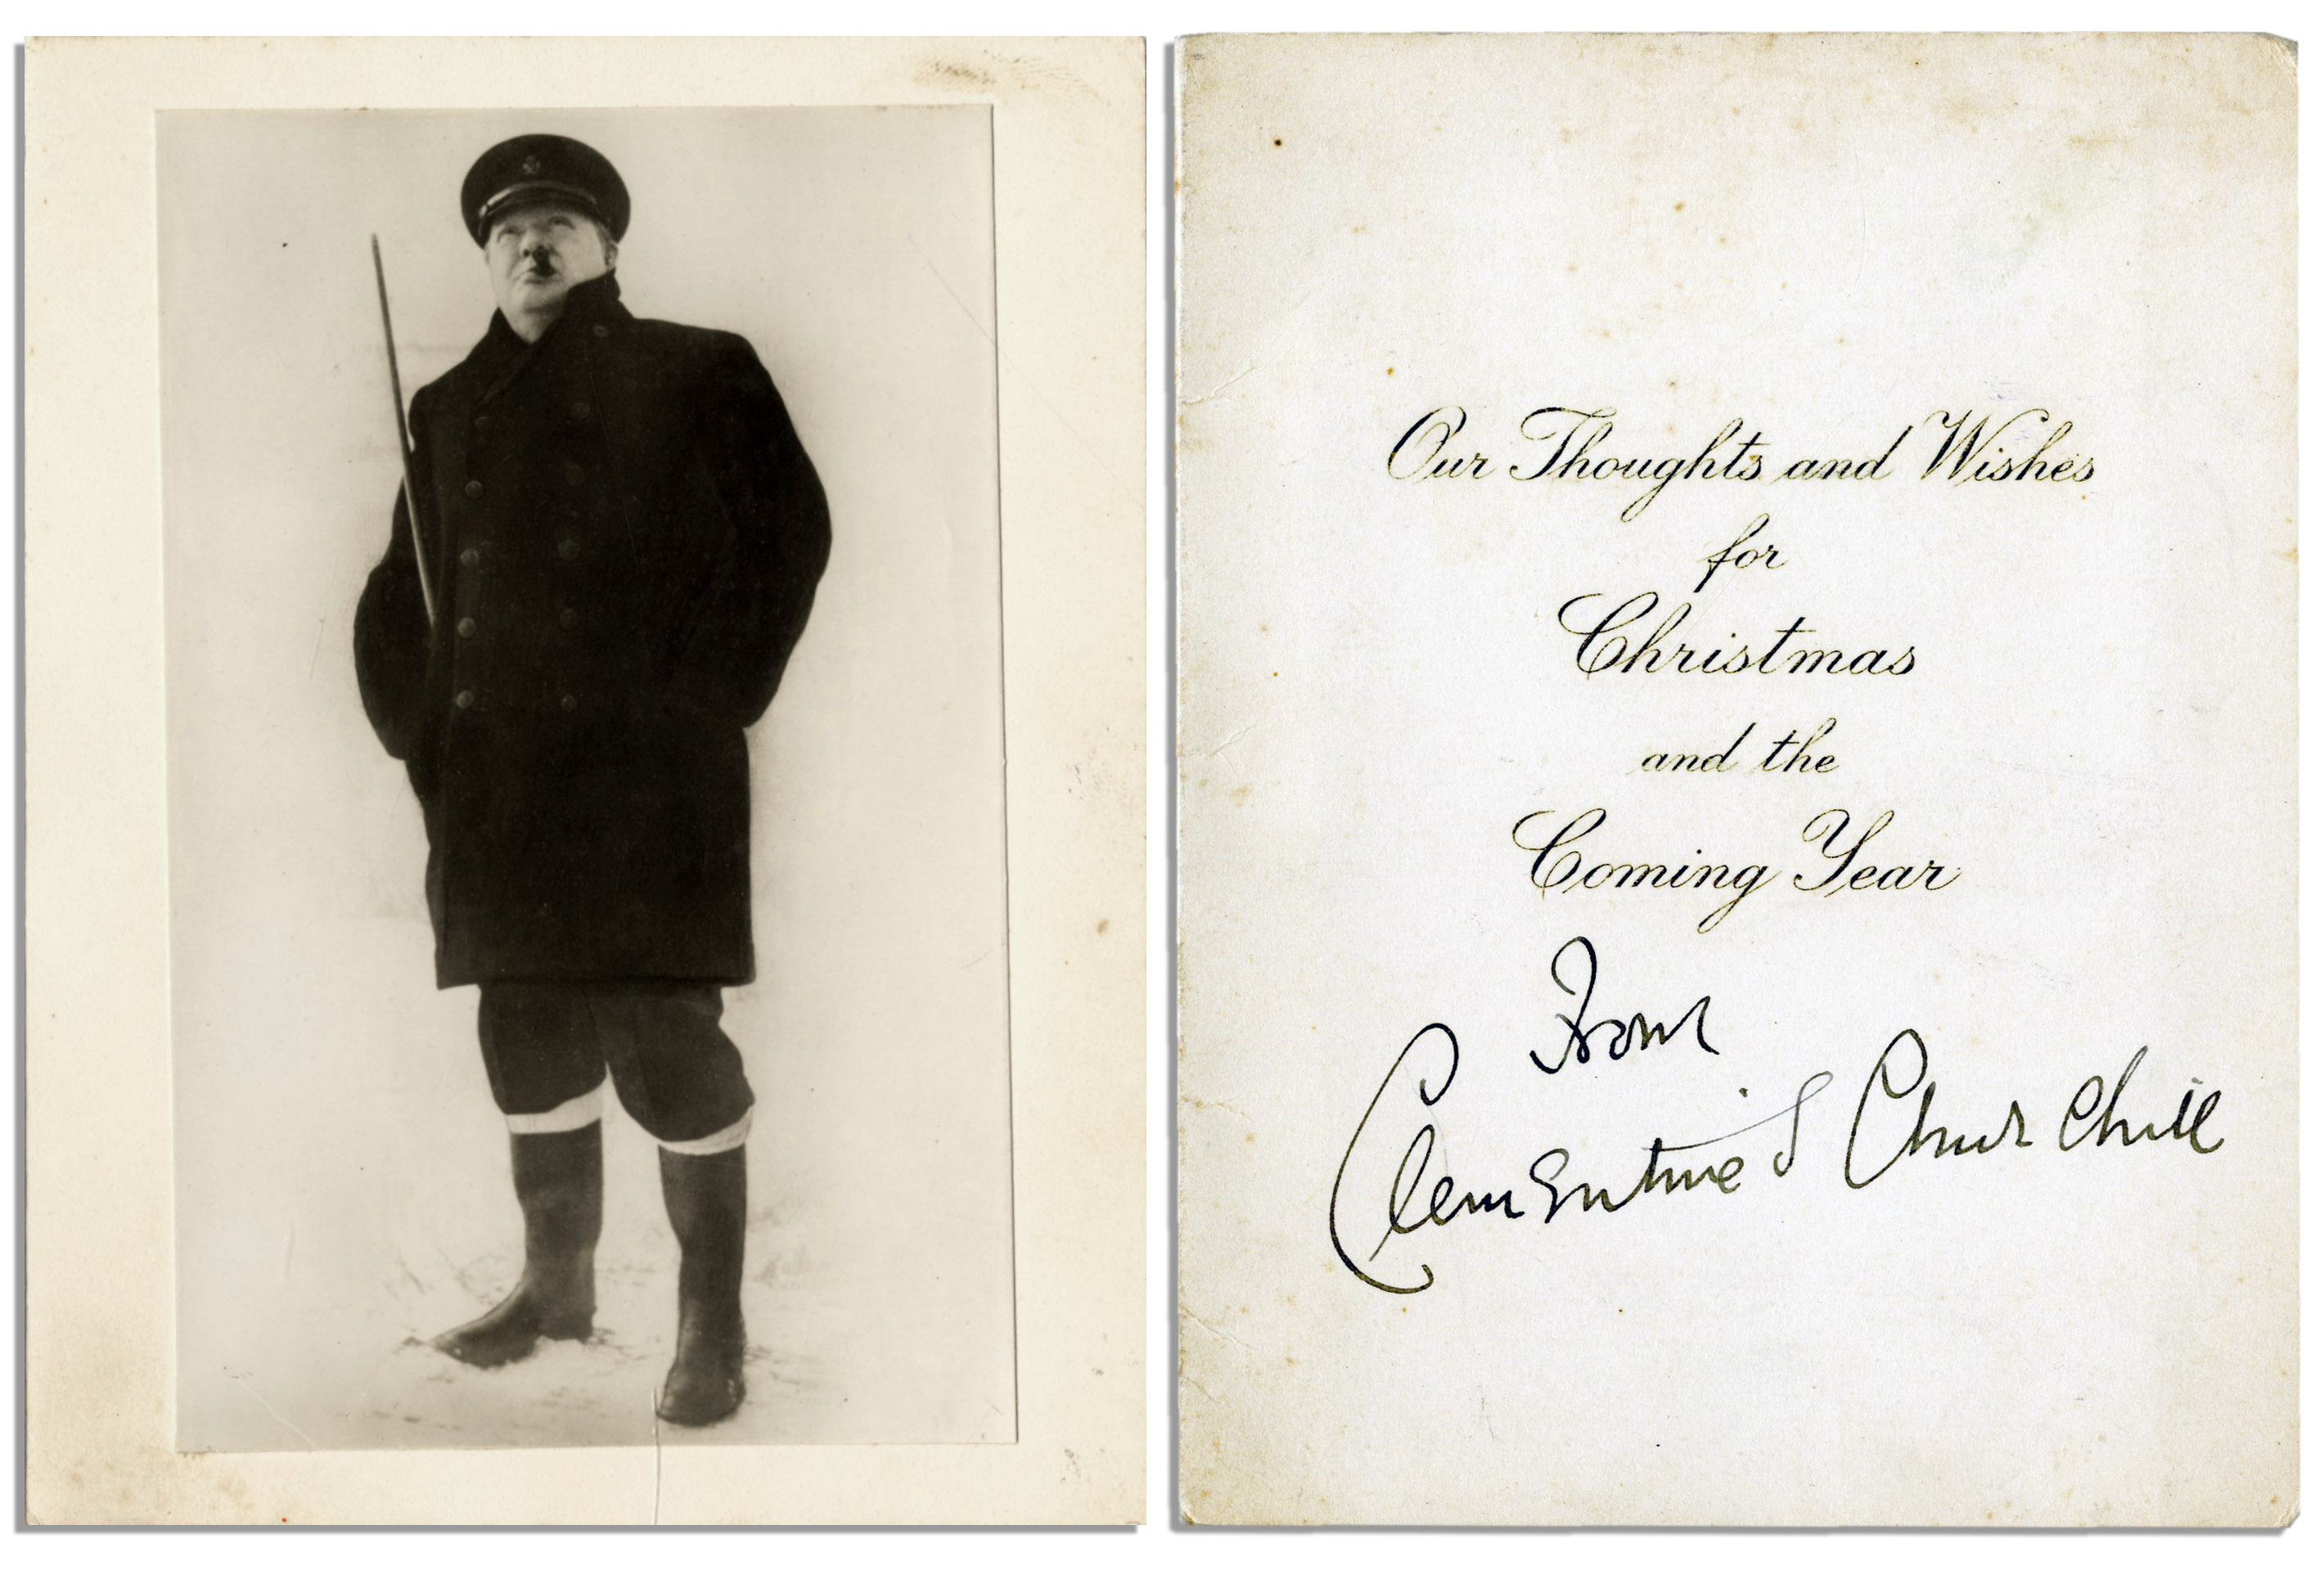 Our Thoughts and Wishes
for
Christmas
and the
Coming Year
From
Clementine S Churchill